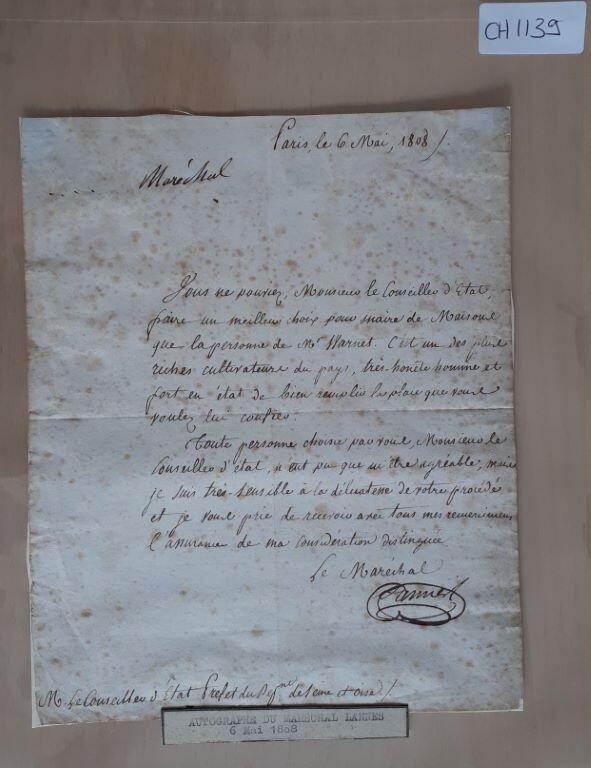 CH1139
Paris, le 6 Mai, 1808
Maréchal
Vous ne pouviez, Monsieur le Conseiller d'Etat,
faire un meilleur choix pour maire de Maisons
que la personne de Mr Warnet. C'est un des plus
riches cultivateurs du pays, très-honnête homme et
fort en état de bien remplir la place que vous
voulez lui confier.
Toute personne choisie par vous, Monsieur le
Conseiller d'état, n'eut pu que m'être agréable, mais
je suis très-sensible à la délicatesse de votre procédé
et je vous prie de recevoir avec tous mes remerciemens
l'assurance de ma considération distinguée
Le Maréchal
Lannes
M. Le Conseiller d'Etat Prefet du Dépt de Seine et Oise
AUTOGRAPHE DU MARECHAL LANNES
6 Mai 1808